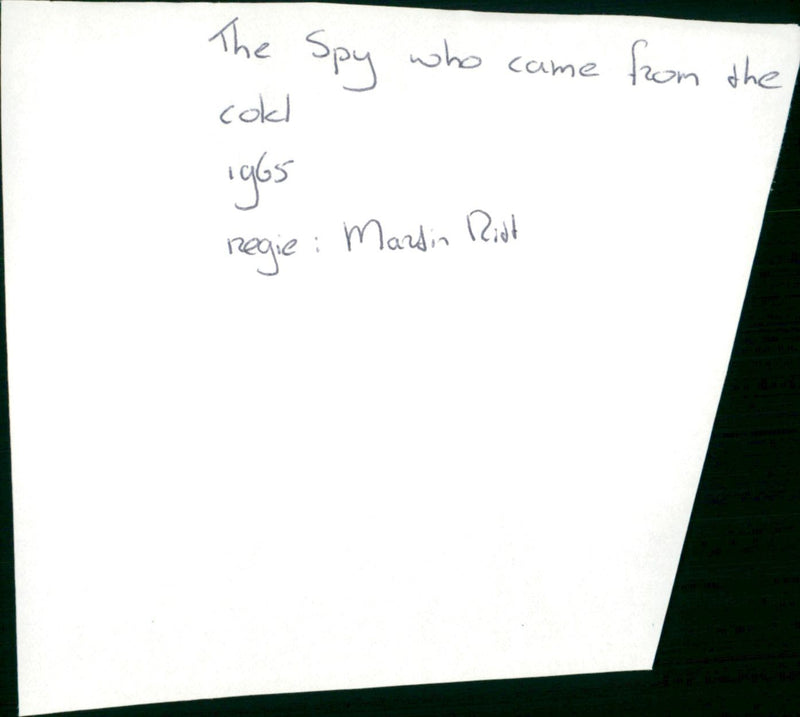 The Spy who came from the
cold
1965
regie : Martin Ritt